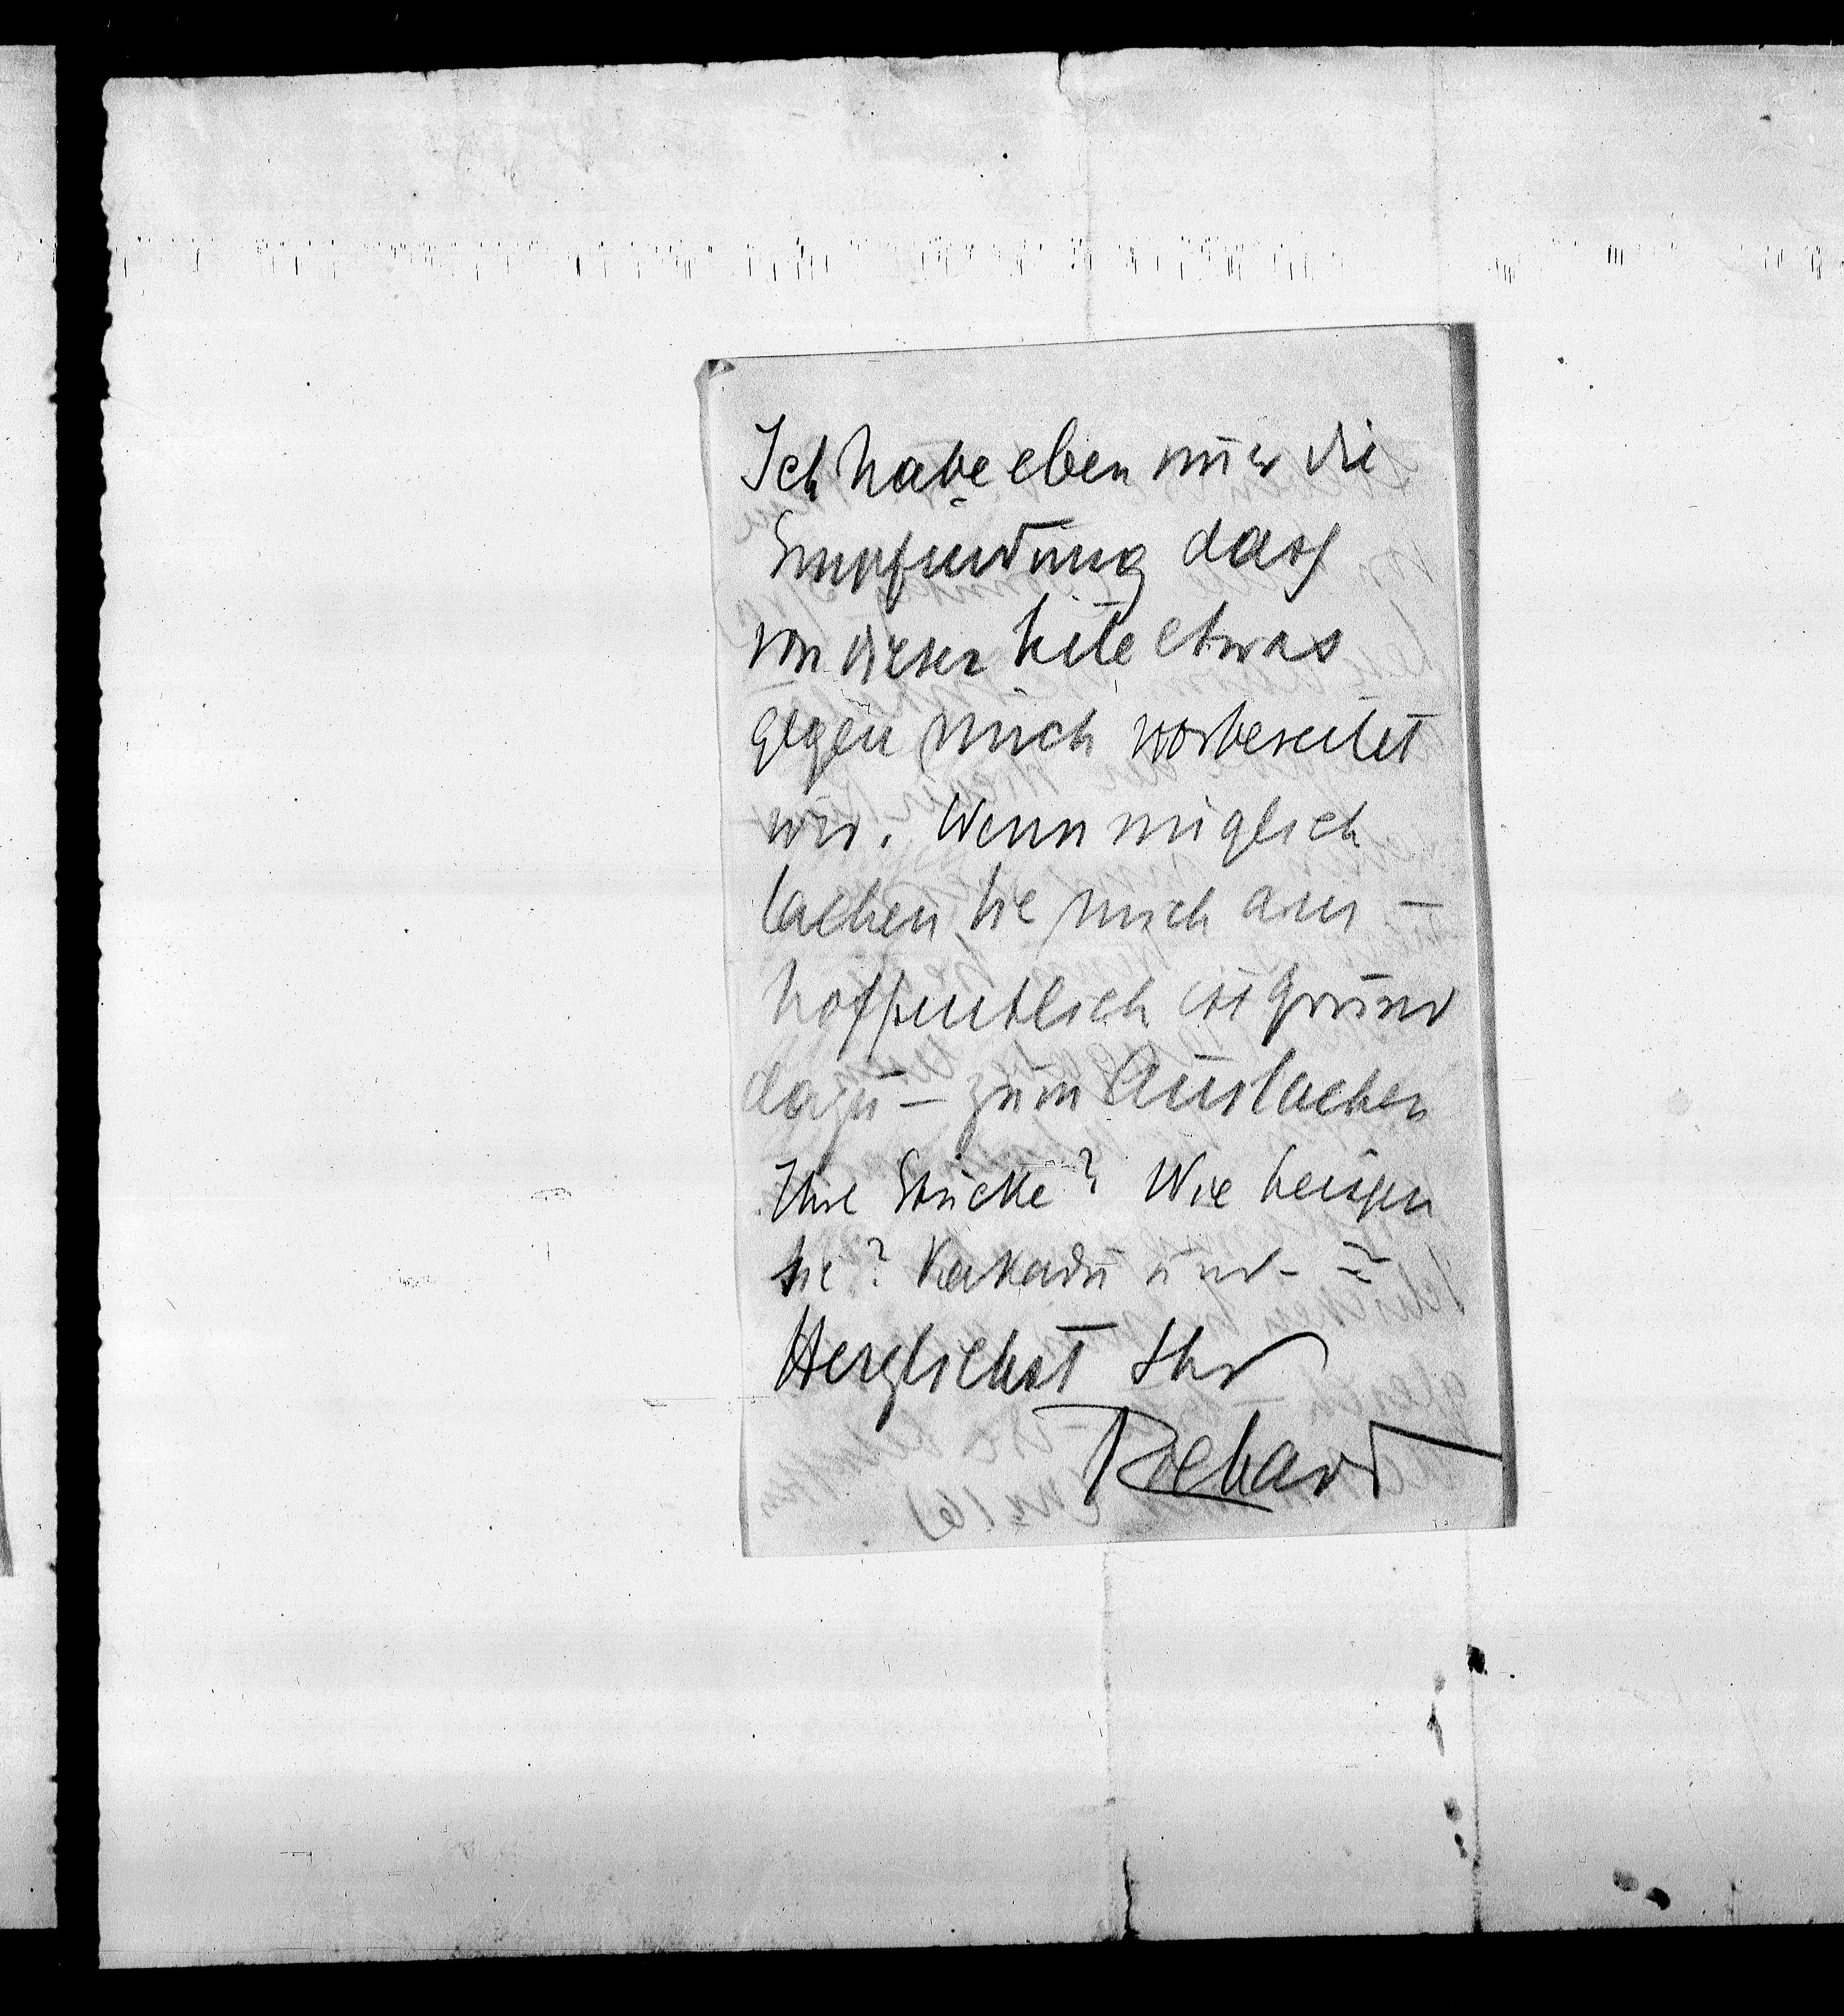 Ich habe eben nur die
Empfindung dass
von dieser Seite etwas
gegen mich vorbereitet
wird. Wenn möglich
lachen Sie mich aus –
hoffentlich ist Grund
dazu – zum Auslachen
Ihre Stücke? Wie heißen
sie? Kakadu und – =
Herzlichst Ihr
Richard